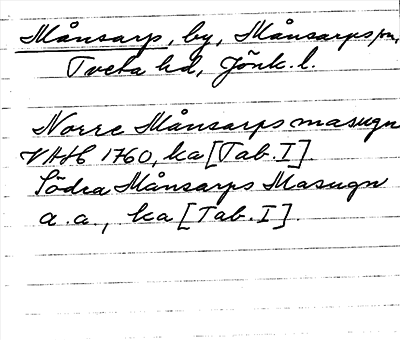 Månsarp, by, Månsarps sn,
Tveta hd, Jönk. l.
Norre Månsarps masugn
VAH 1760, ka [Tab. I].
Södra Månsarps Masugn
a. a., ka [Tab. I].